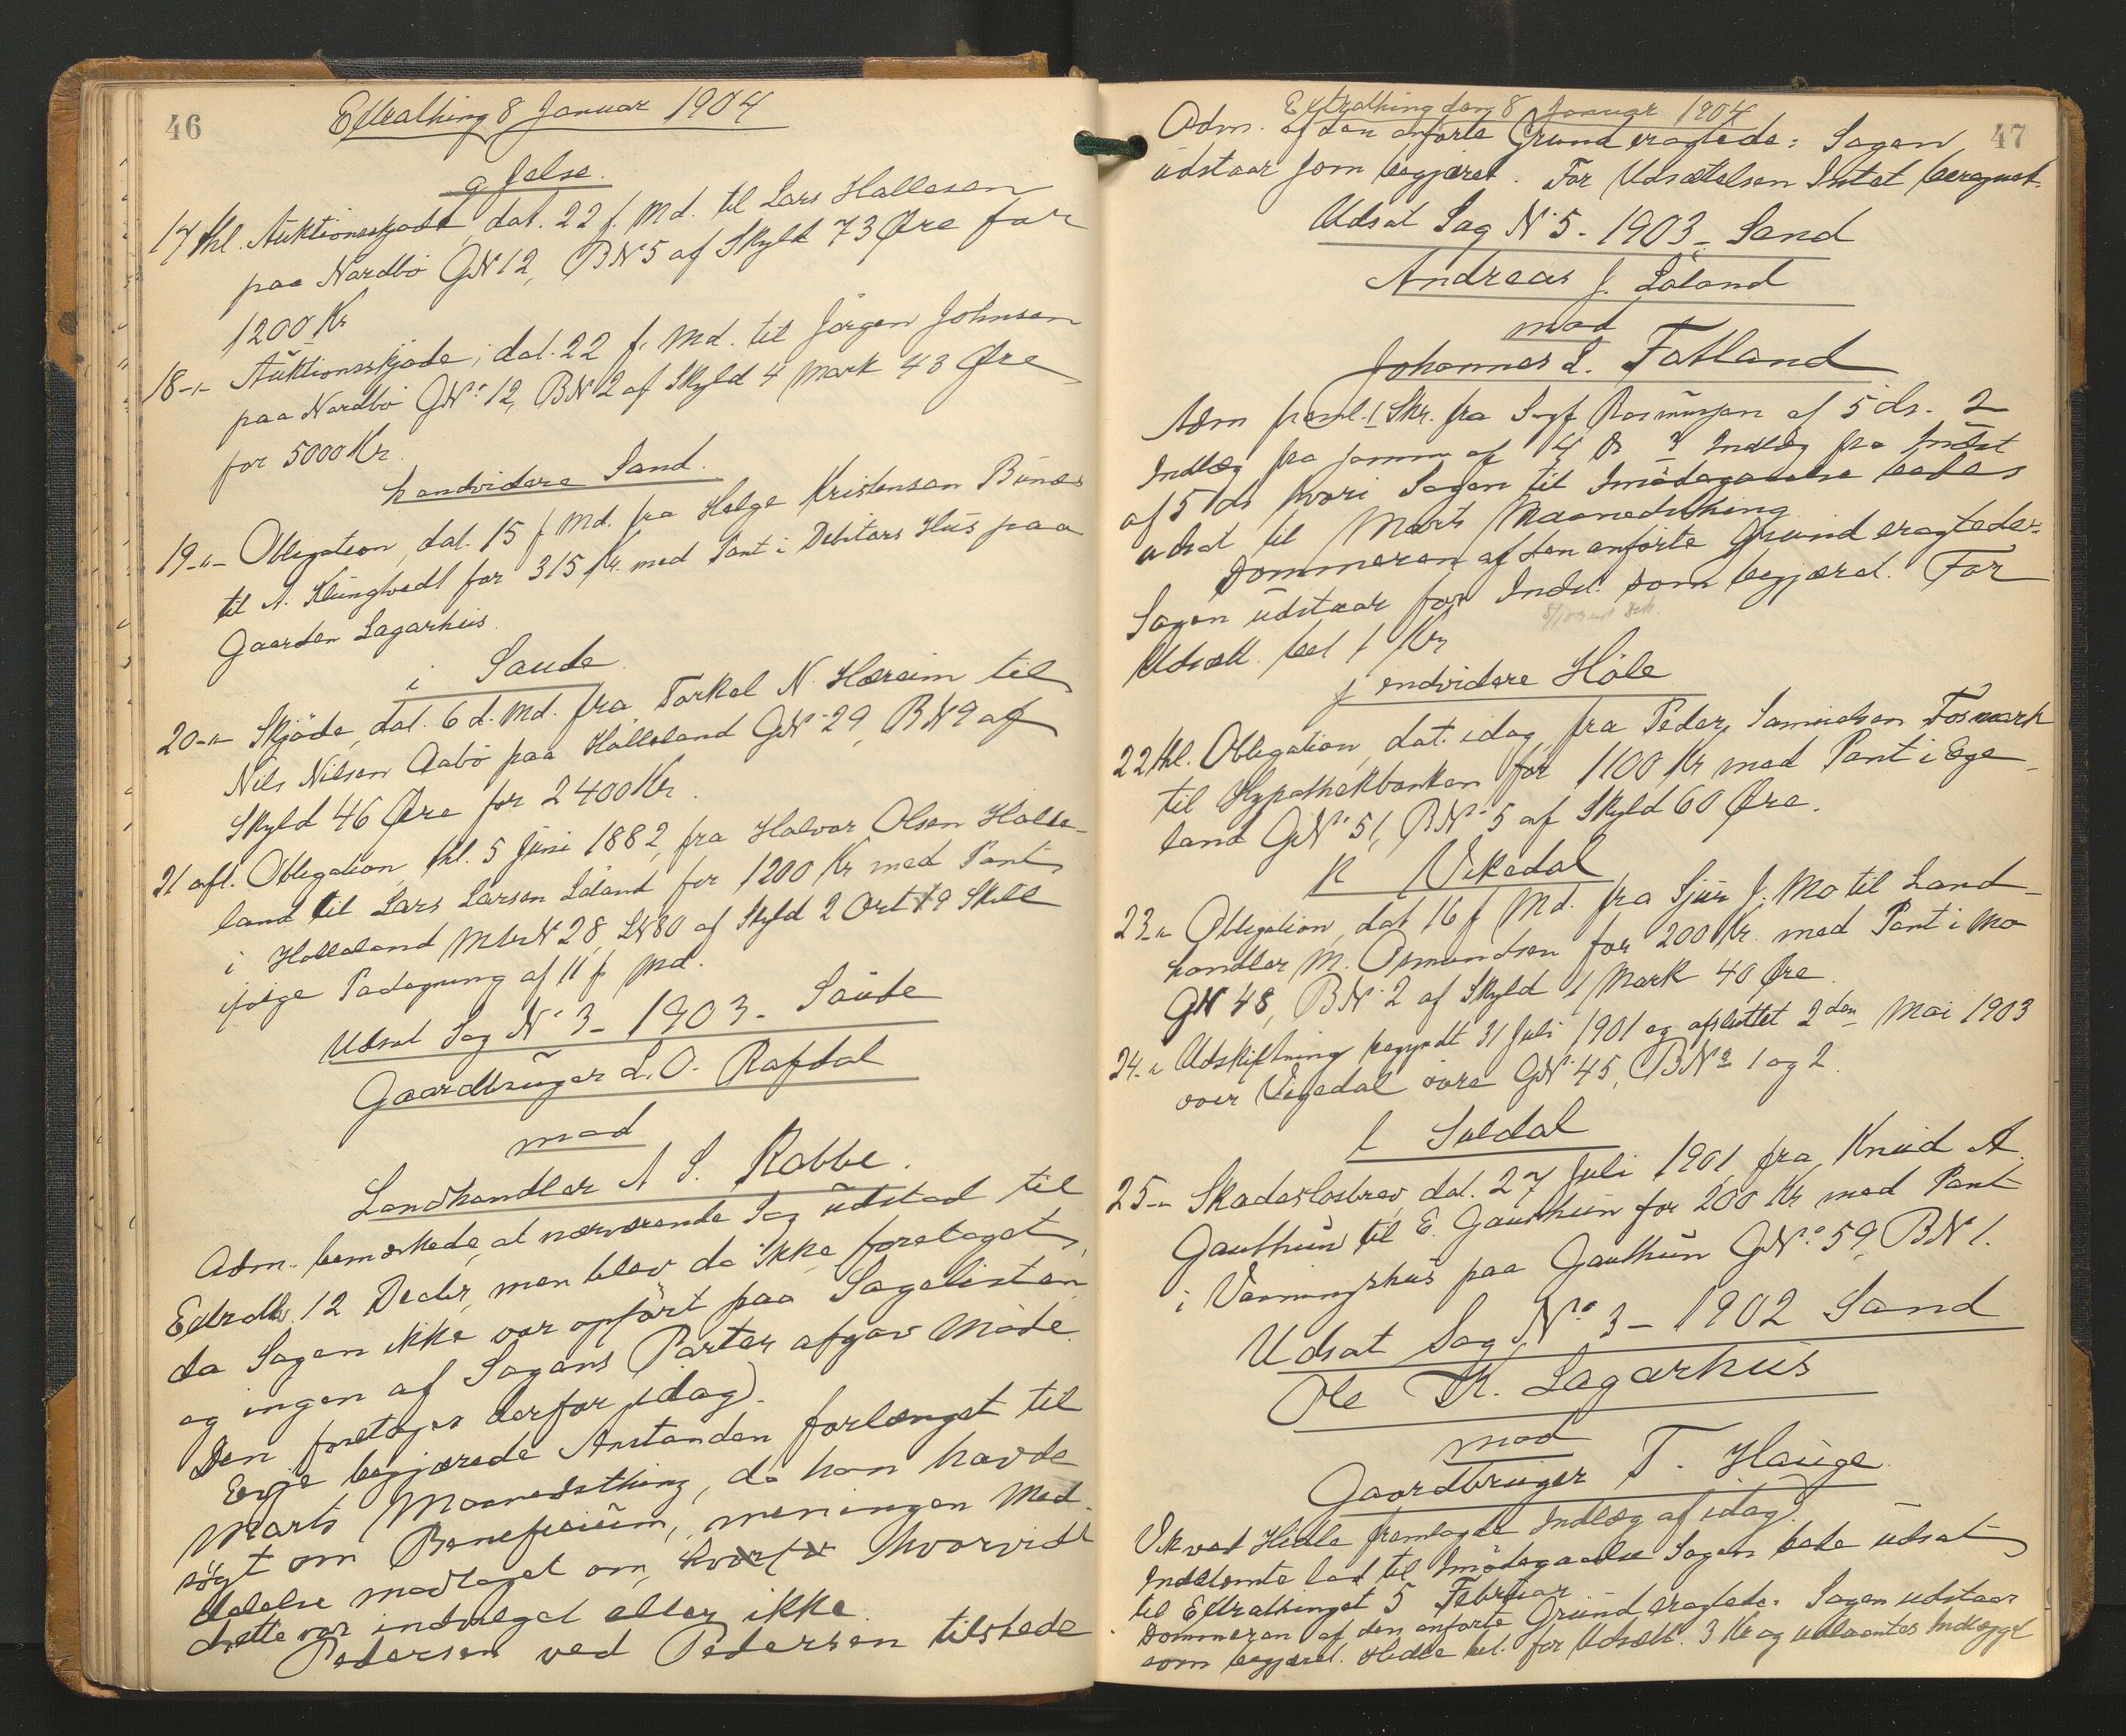 46
Extrathing 8 Januar 1904
g Jelse.
17 thl. Auktionsskjøde, dat. 22 f. Md. til Lars Hallesen
paa Nordbö GN 12, BN 5 af Skyld 73 Øre for
1200 Kr
18 -"- Auktionsskjøde, dat. 22 f. Md. til Jörgen Johnsen
paa Nordbö GN: 12, BN 2 af Skyld 4 Mark 43 Øre
for 5000 Kr.
h endvidere Sand.
19 -"- Obligation, dat. 15 f Md. fra Helge Kristensen Bunes
til A. Klungtvedt for 315 Kr. med Pant i Debitors Hus paa
Gaarden Lagarhus.
i Saude
20 -"- Skjöde, dat. 6 d. Md. fra Torkel N. Hæreim til
Nils Nilsen Aabö paa Hölleland GN: 29, BN 9 af
Skyld 46 Øre for 2400 Kr.
21 afl. Obligation, thl. 5 Juni 1882, fra Halvor Olsen Hölle-
land til Lars Larsen Löland for 1200 Kr med Pant
i Hölleland MtrN 28, LN 80 af Skyld 2 Ort 19 Skill
ifølge Paategning af 11 f Md.
Udsat Sag N: 3 - 1903 - Saude
Gaardbruger L. O. Rafdal
mod
Landhandler A S. Rabbe.
Adm. bemærkede, at nærværende Sag udstod til
Extrath. 12 Decbr, men blev da ikke foretaget,
da Sagen ikke var opfört paa Sagslisten
og ingen af Sagens Parter afgav Møde.
Den foretages derfor idag.
Berge begjærede Anstanden forlænget til
Marts Maanedsthing, da han havde
søgt om Beneficium, meningen Med-
delelse modtaget om, hvorvidt
dette var indvilget eller ikke.
Pedersen ved Pedersen tilstede
47
Extrathing den 8 Januar 1904
Adm. af den anførte Grund eragtede: Sagen
udstaar som begjæret. For Udsættelsen Intet beregnet.
Udsat Sag N: 5 - 1903 - Sand
Andreas J. Löland
mod
Johannes L. Fatland
Adm freml. 1 Skr. fra Sagf Rasmussen af 5 ds. 2
Indlæg fra samme af 14 3 Indlæg fra Indst
af 5 ds hvori Sagen til Imødegaaelse bedes
udsat til Marts Maanedsthing
Dommeren af den anførte Grund eragtede:
Sagen udstaar for Indst. som begjæret. For
Udsætt. bet 1 Kr
j endvidere Höle
22 thl. Obligation, dat. idag fra Peder Samuelsen Fosmark
til Hypothekbanken for 1100 Kr med Pant i Ege-
land GN: 51, BN: 5 af Skyld 60 Øre.
k Vikedal
23 -"- Obligation, dat 16 f Md. fra Sjur J. Mo til Land-
handler M. Osmundsen for 200 Kr. med Pant i Mo
GN 48, BN: 2 af Skyld 1 Mark 40 Øre
24 -"- Udskiftning begyndt 31 Juli 1901 og afsluttet 2den Mai 1903
over Vigedal övre GN: 45, BN: 1 og 2.
l Suldal
25 -"- Skadesløsbrev, dat. 27 Juli 1901 fra Knud A.
Gauthun til E. Gauthun for 200 Kr med Pant
i Vaaningshus paa Gauthun GN: 59, BN 1.
Udsat Sag N: 3 - 1902 Sand
Ole K. Lagarhus
mod
Gaardbruger T. Hauge.
Vikved Hidle fremlagde Indlæg af idag.
Indstemte lod til Imødegaaelse Sagen bede udsat
til Extrathinget 5 Februar
Dommeren af den anførte Grund eragtede: Sagen udstaar
som begjæret. Hidle bet. for Udsætt. 3 Kr og Indlægget